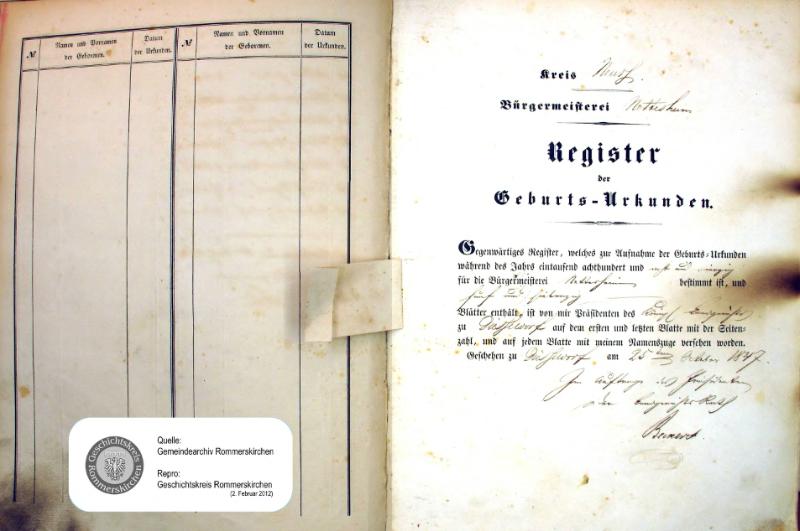 №
Namen und Vornamen
der Gebornen.
Datum
der Urkunden.
№
Namen und Vornamen
der Gebornen.
Datum
der Urkunden.
Kreis Neuß.
Bürgermeisterei Nettesheim
Register
der
Geburts-Urkunden.
Gegenwärtiges Register, welches zur Aufnahme der Geburts-Urkunden
während des Jahrs eintausend achthundert und acht und vierzig
für die Bürgermeisterei Nettesheim bestimmt ist, und
fünf und siebenzig
Blätter enthält, ist von mir Präsidenten des Königl. Landgerichts
zu Düsseldorf auf dem ersten und letzten Blatte mit der Seiten-
zahl, und auf jedem Blatte mit meinem Namenszuge versehen worden.
Geschehen zu Düsseldorf am 25 ten October 1847.
Im Auftrage des Präsidenten
der Landgerichts Rath
Quelle:
Gemeindearchiv Rommerskirchen
Repro:
Geschichtskreis Rommerskirchen
(2. Februar 2012)
Geschichtskreis
Rommerskirchen